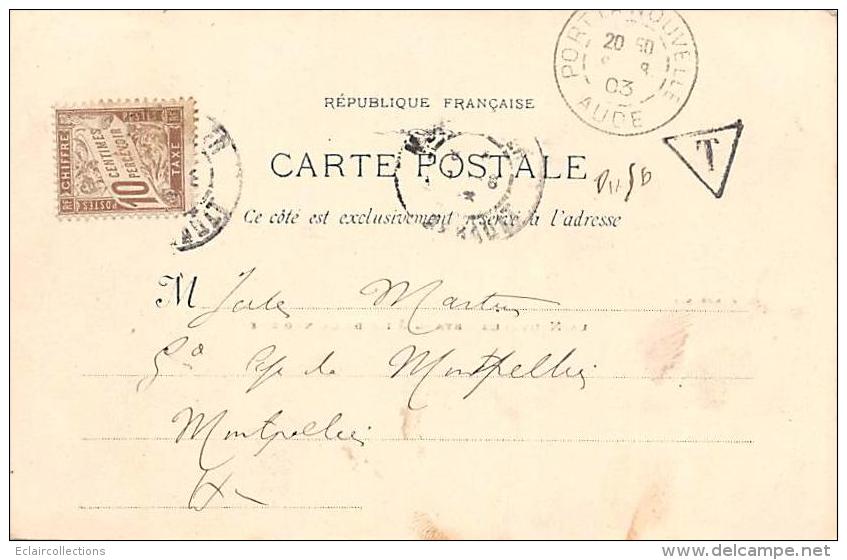 PORT-LA-NOUVELLE
20
03
AUDE
RÉPUBLIQUE FRANÇAISE
T
CHIFFRE
10
CENTIMES
A PERCEVOIR
TAXE
POSTES
CARTE POSTALE
Ce côté est exclusivement réservé à l'adresse
M Jules Martin
de Montpellier
Montpellier
Eclaircollections
http://www.delcampe.net